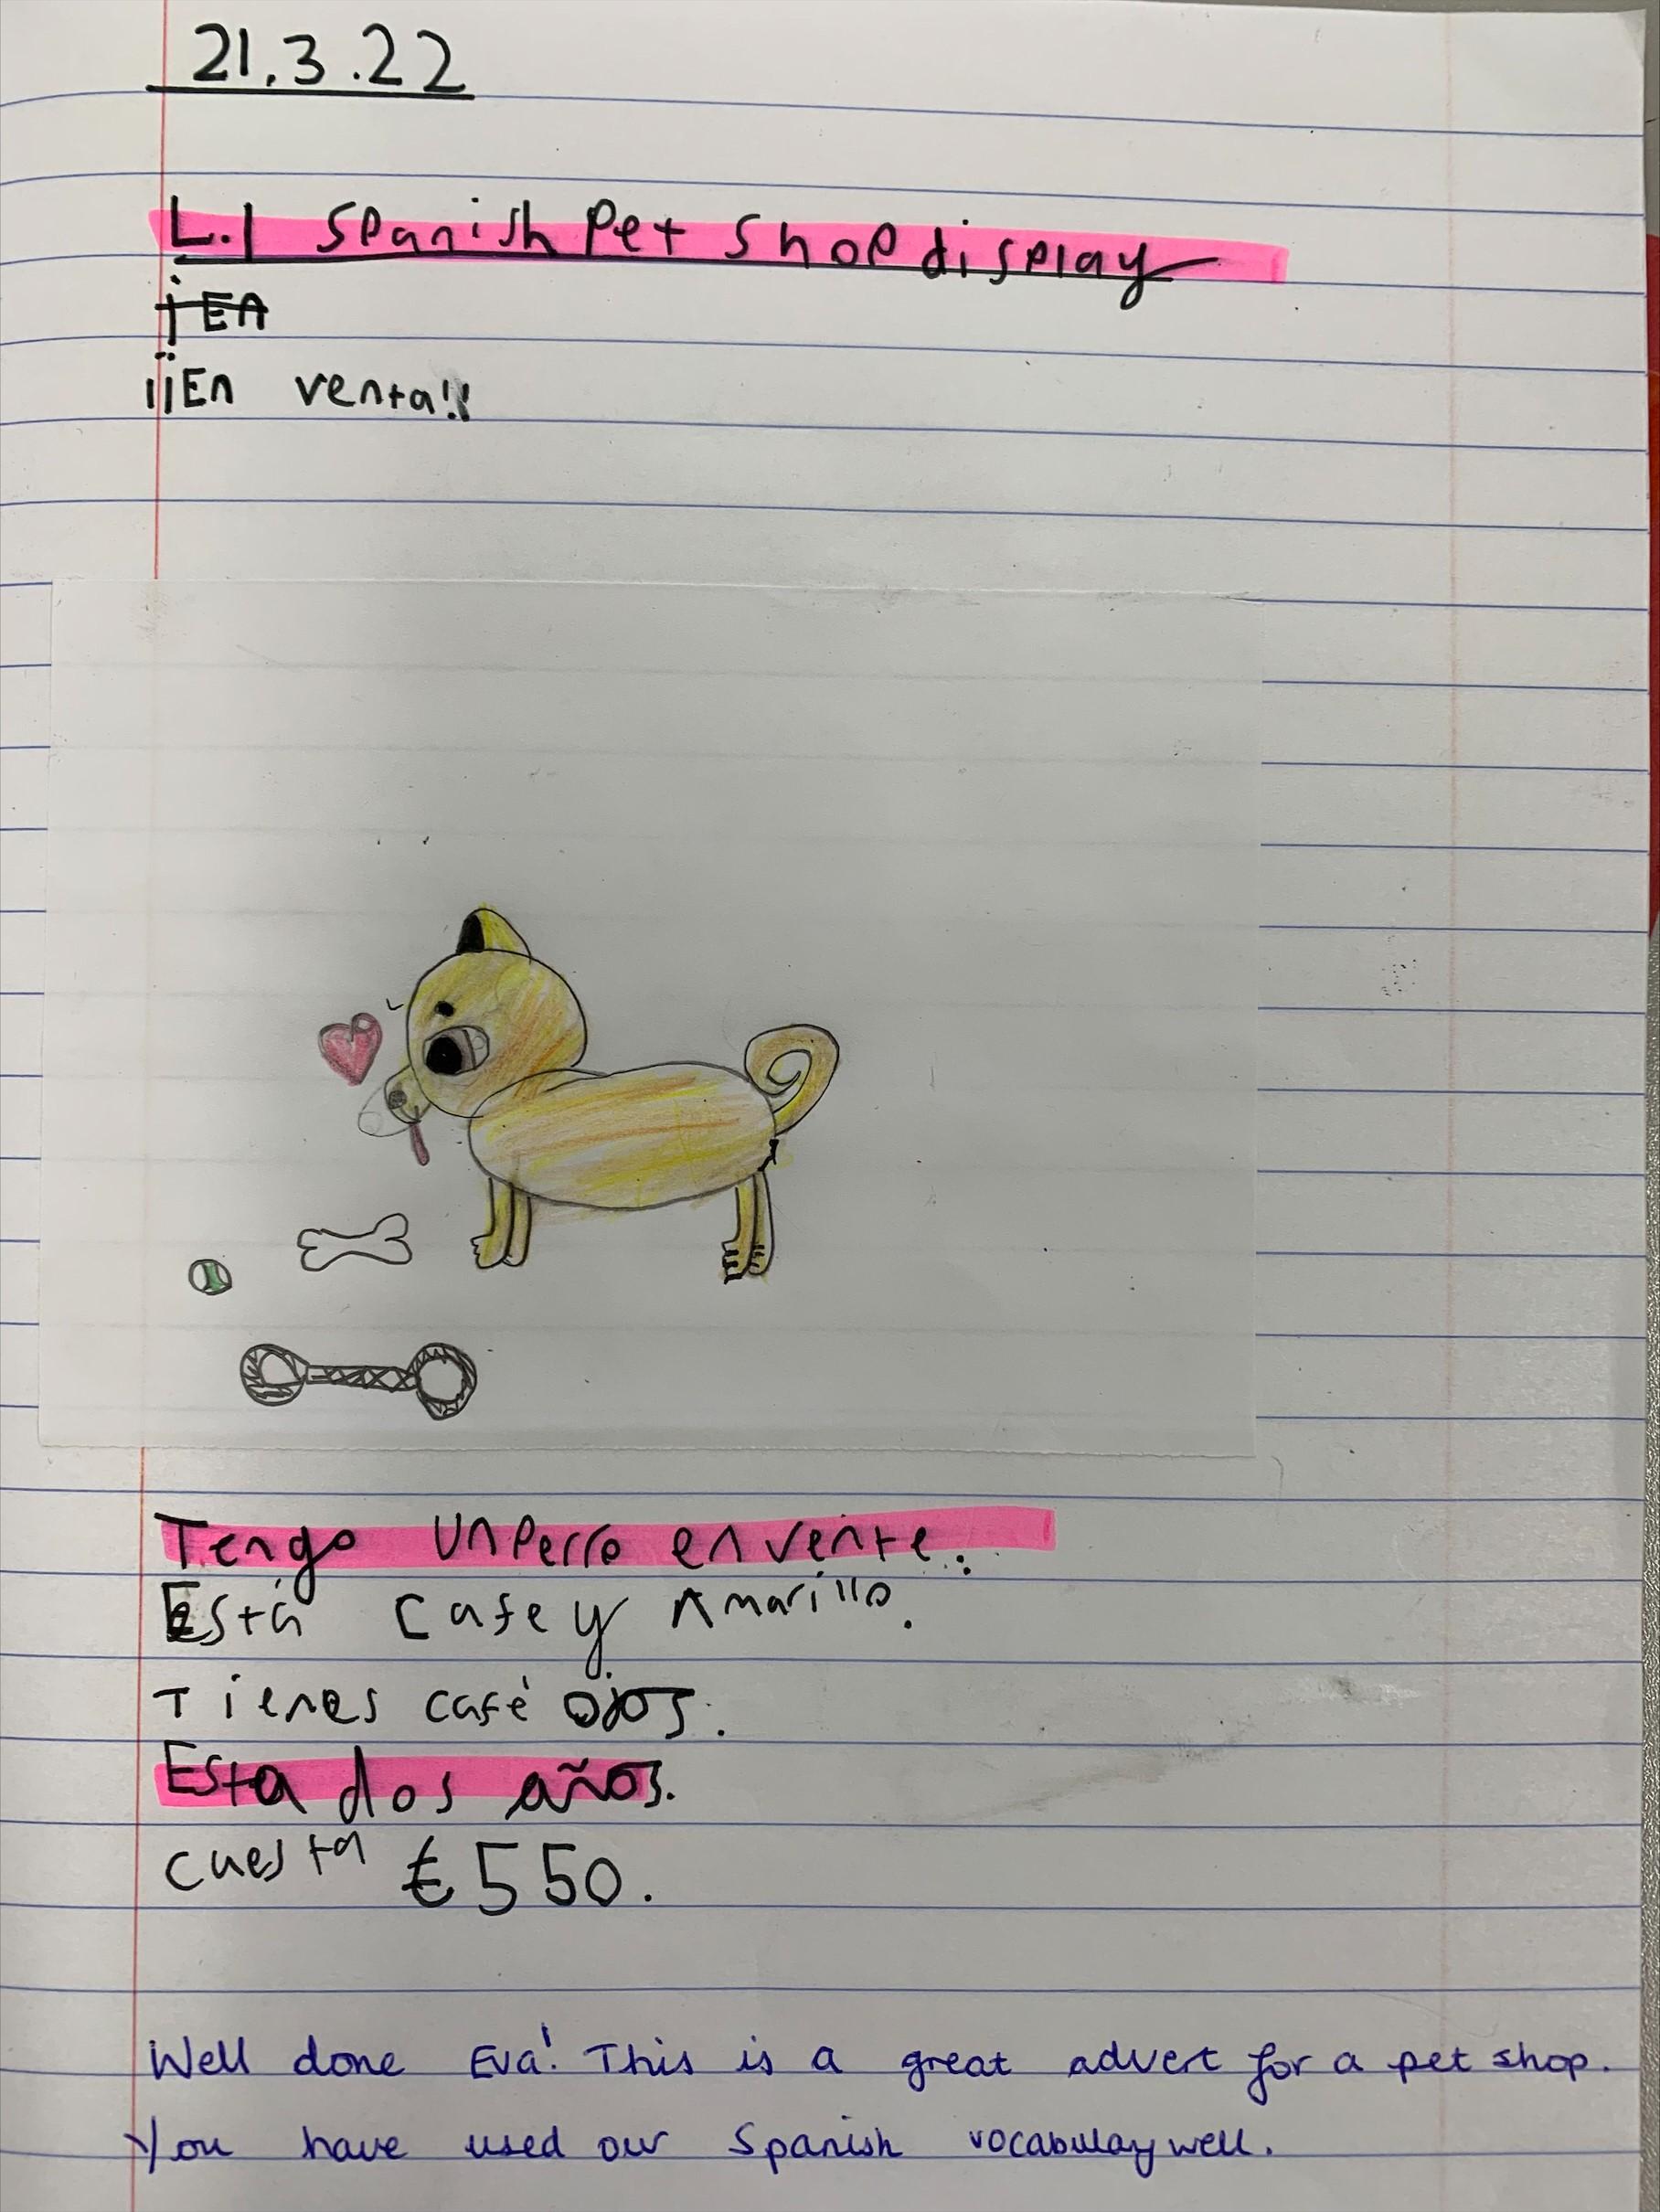 21.3.22
L.I Spanish Pet shop display
¡EA
¡¡En venta!!
Tengo un Perro en vente.
Está cafe y Amarillo.
Tienes café ojos.
Esta dos años.
cuesta €550.
Well done Eva! This is a great advert for a pet shop.
You have used our Spanish vocabulay well.